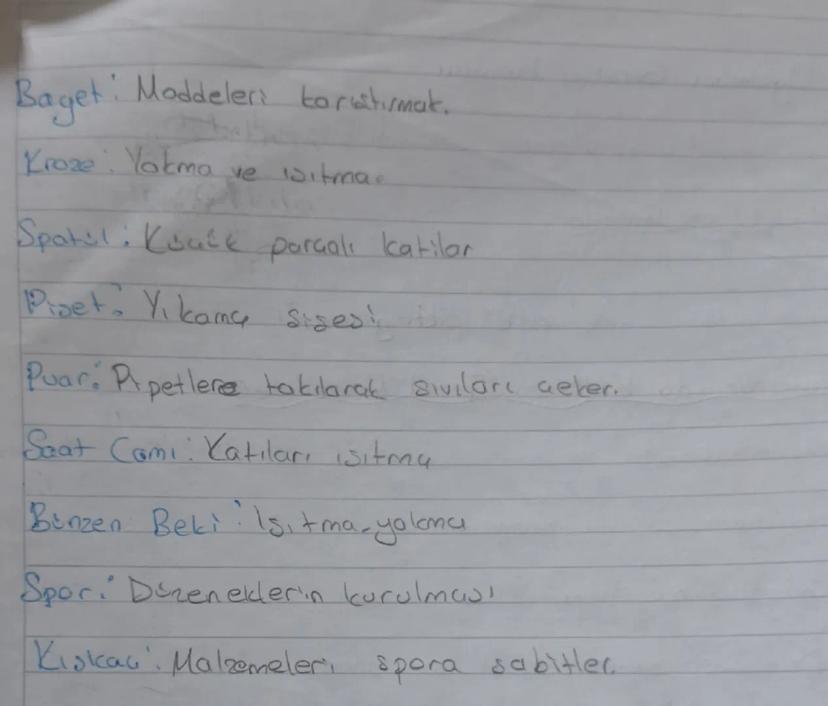 Baget: Maddeleri karıştırmak.
Kroze: Yakma ve ısıtma.
Spatül: Küçük parçalı katılar
Piset: Yıkama şişesi
Puar: Pipetlere takılarak sıvıları çeker.
Saat Camı: Katıları ısıtma
Bünzen Beki: Isıtma-yakma
Spor: Düzeneklerin kurulması
Kıskaç: Malzemeleri spora sabitler.